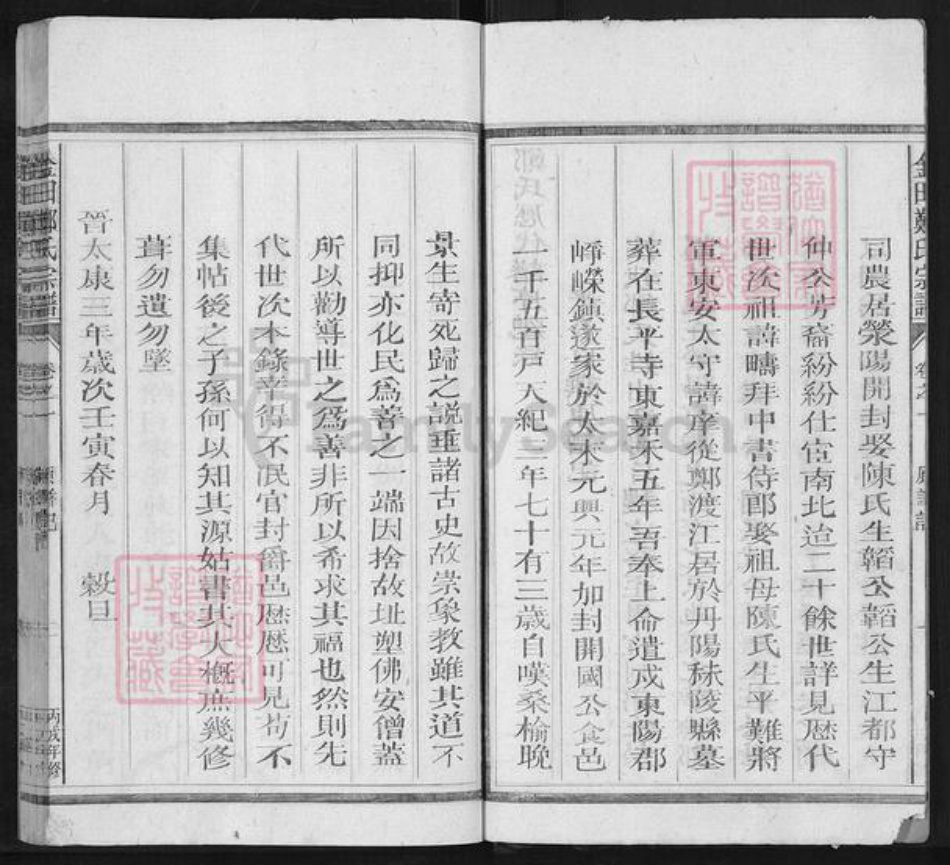 司農居滎陽開封娶陳氏生韜公韜公生江都守
仲公芳裔紛紛仕宦南北迨二十餘世詳見歷代
世次祖諱疇拜中書侍郎娶祖母陳氏生平難將
軍東安太守諱庠從鄭渡江居於丹陽秣陵縣墓
葬在長平寺東嘉禾五年吾奉上命遣戍東陽郡
崢嶸鎮遂家於太末元興元年加封開國公食邑
一千五百戸天紀三年七十有三歲自嘆桑榆晚
景生寄死歸之説垂諸古史故崇象教雖其道不
同抑亦化民為善之一端因捨故址塑佛安僧蓋
所以勸導世之為善非所以希求其福也然則先
代世次本錄幸得不泯官封爵邑歷歷可見苟不
集帖後之子孫何以知其源姑書其大概庶幾修
葺勿遺勿墜
晉太康三年歲次壬寅春月 穀旦
金田鄭氏宗譜
卷之一
金田鄭氏宗譜
卷之一
FamilySearch